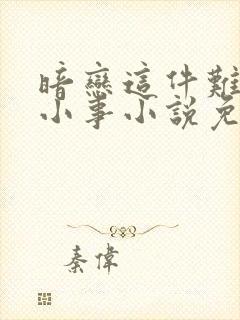 暗戀這件難
小事小說免
秦偉